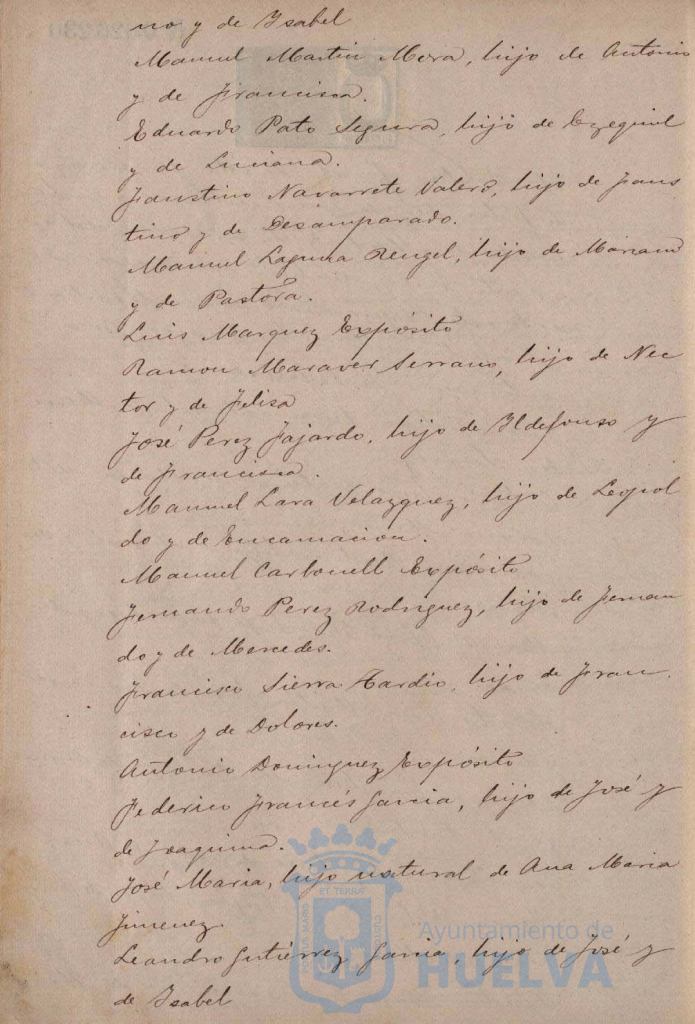 no y de Isabel
Manuel Martin Mora, hijo de Antonio
y de Francisca.
Eduardo Pato Segura, hijo de Ezequiel
y de Luciana.
Faustino Navarrete Valero, hijo de Faus
tino y de Desamparado.
Manuel Laguna Rengel, hijo de Mariano
y de Pastora.
Luis Marquez Expósito
Ramon Maraver Serrano, hijo de Nec
tor y de Felisa
José Perez Fajardo, hijo de Ildefonso y
de Francisca.
Manuel Lara Velazquez, hijo de Leopol
do y de Encarnacion.
Manuel Carbonell Expósito
Fernando Perez Rodriguez, hijo de Fernan
do y de Mercedes.
Francisco Sierra Tardio, hijo de Fran
cisco y de Dolores.
Antonio Dominguez Expósito
Federico Francés Garcia, hijo de José y
de Joaquina.
José Maria, hijo natural de Ana Maria
Jimenez.
Leandro Gutiérrez Garcia, hijo de José y
de Isabel
Ayuntamiento de
HUELVA